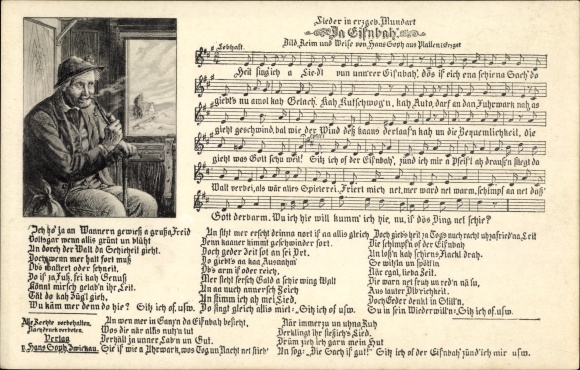 Lieder in erzgeb. Mundart
Da Eis'nbah'.
Bild, Reim und Weise von Hans Soph aus Platten i. Erzgeb.
Lebhaft.
Heit sing ich a Lie-dl vun unn'rer Eis'nbah', dös is eich ena schiena Sach' do
giebt's nu amol kah Gelach'. Kah Kutschwog'n, kah Auto, darf an dan Fuhrwark nah, as
gieht geschwind, bal wie der Wind des kaans derlaaf'n kah un die Bequemlichkeit, die
gieht was Gott schu weit! Sitz ich of der Eis'nbah', zünd ich mir a Pfeif'l ah, drauß'n fliegt do
Wald verbei, als wär alles Spielerei. Friert mich net, mer ward net warm, schimpf aa net doß
Gott derbarm. Wu ich hie will kumm' ich hie, nu, is dös Ding net schie?
Ich ho' ja an Wannern gewieß a gruße Freid
Vollsgar wenn allis grünt un blüht
Un dorch der Wald da Schieheit gieht.
Doch wenn mer halt fort muß
Ob's wallert oder schneit.
Do is ja Fuß, sei kah Genuß
Könnt mirsch gelab'n ihr Leit.
Tät do kah Zügl gieh,
Wu käm mer denn do hie? Sitz ich of. usw.
Un siht mer erscht drinna nort is aa allis gleich
Denn kaaner kimmt geschwinder fort.
Doch geder Zeit sei an Sei Ort.
Do giebt's aa kaa Ausnahm'
Ob's arm is oder reich,
Mer sieht fersch Gald a schie wing Walt
Un aa nuch annersch Zeich
Un stimm ich ah mei Lied,
Do singt gleich allis miet: Sitz ich of. usw.
Doch gieb's heit za Tog's nuch racht uhzafried'na Leit
Die schimpf'n of der Eis'nbah
Un loß'n kah schiens Flackl drah.
Se with'n un spött'n
När egal, liebe Leit.
Die warn net fruh un red'n nä sa,
Aus lauter Ölbrichkeit.
Doch Geder denkt in Still'n,
Su in sein Wiederwill'n: Sitz ich of. usw.
Alle Rechte vorbehalten.
Nachdruck verboten.
Verlag
v. Hans Soph, Zwickau.
Un wen mer in Ganz'n da Eis'nbah besieht,
Wos die när allis nuh'n tut
Derhält ja unner Lab'n un Gut.
Sie is wie a Uhrwark, wos Tog un Nacht net stieh'
När immerzu un uhna Ruh
Verklingt ihr fleißich's Lied.
Drüm zieh ich garn mein Hut
Un sog: "Die Sach is gut!" Sitz ich of der Eis'nbah' zünd' ich mir usw.